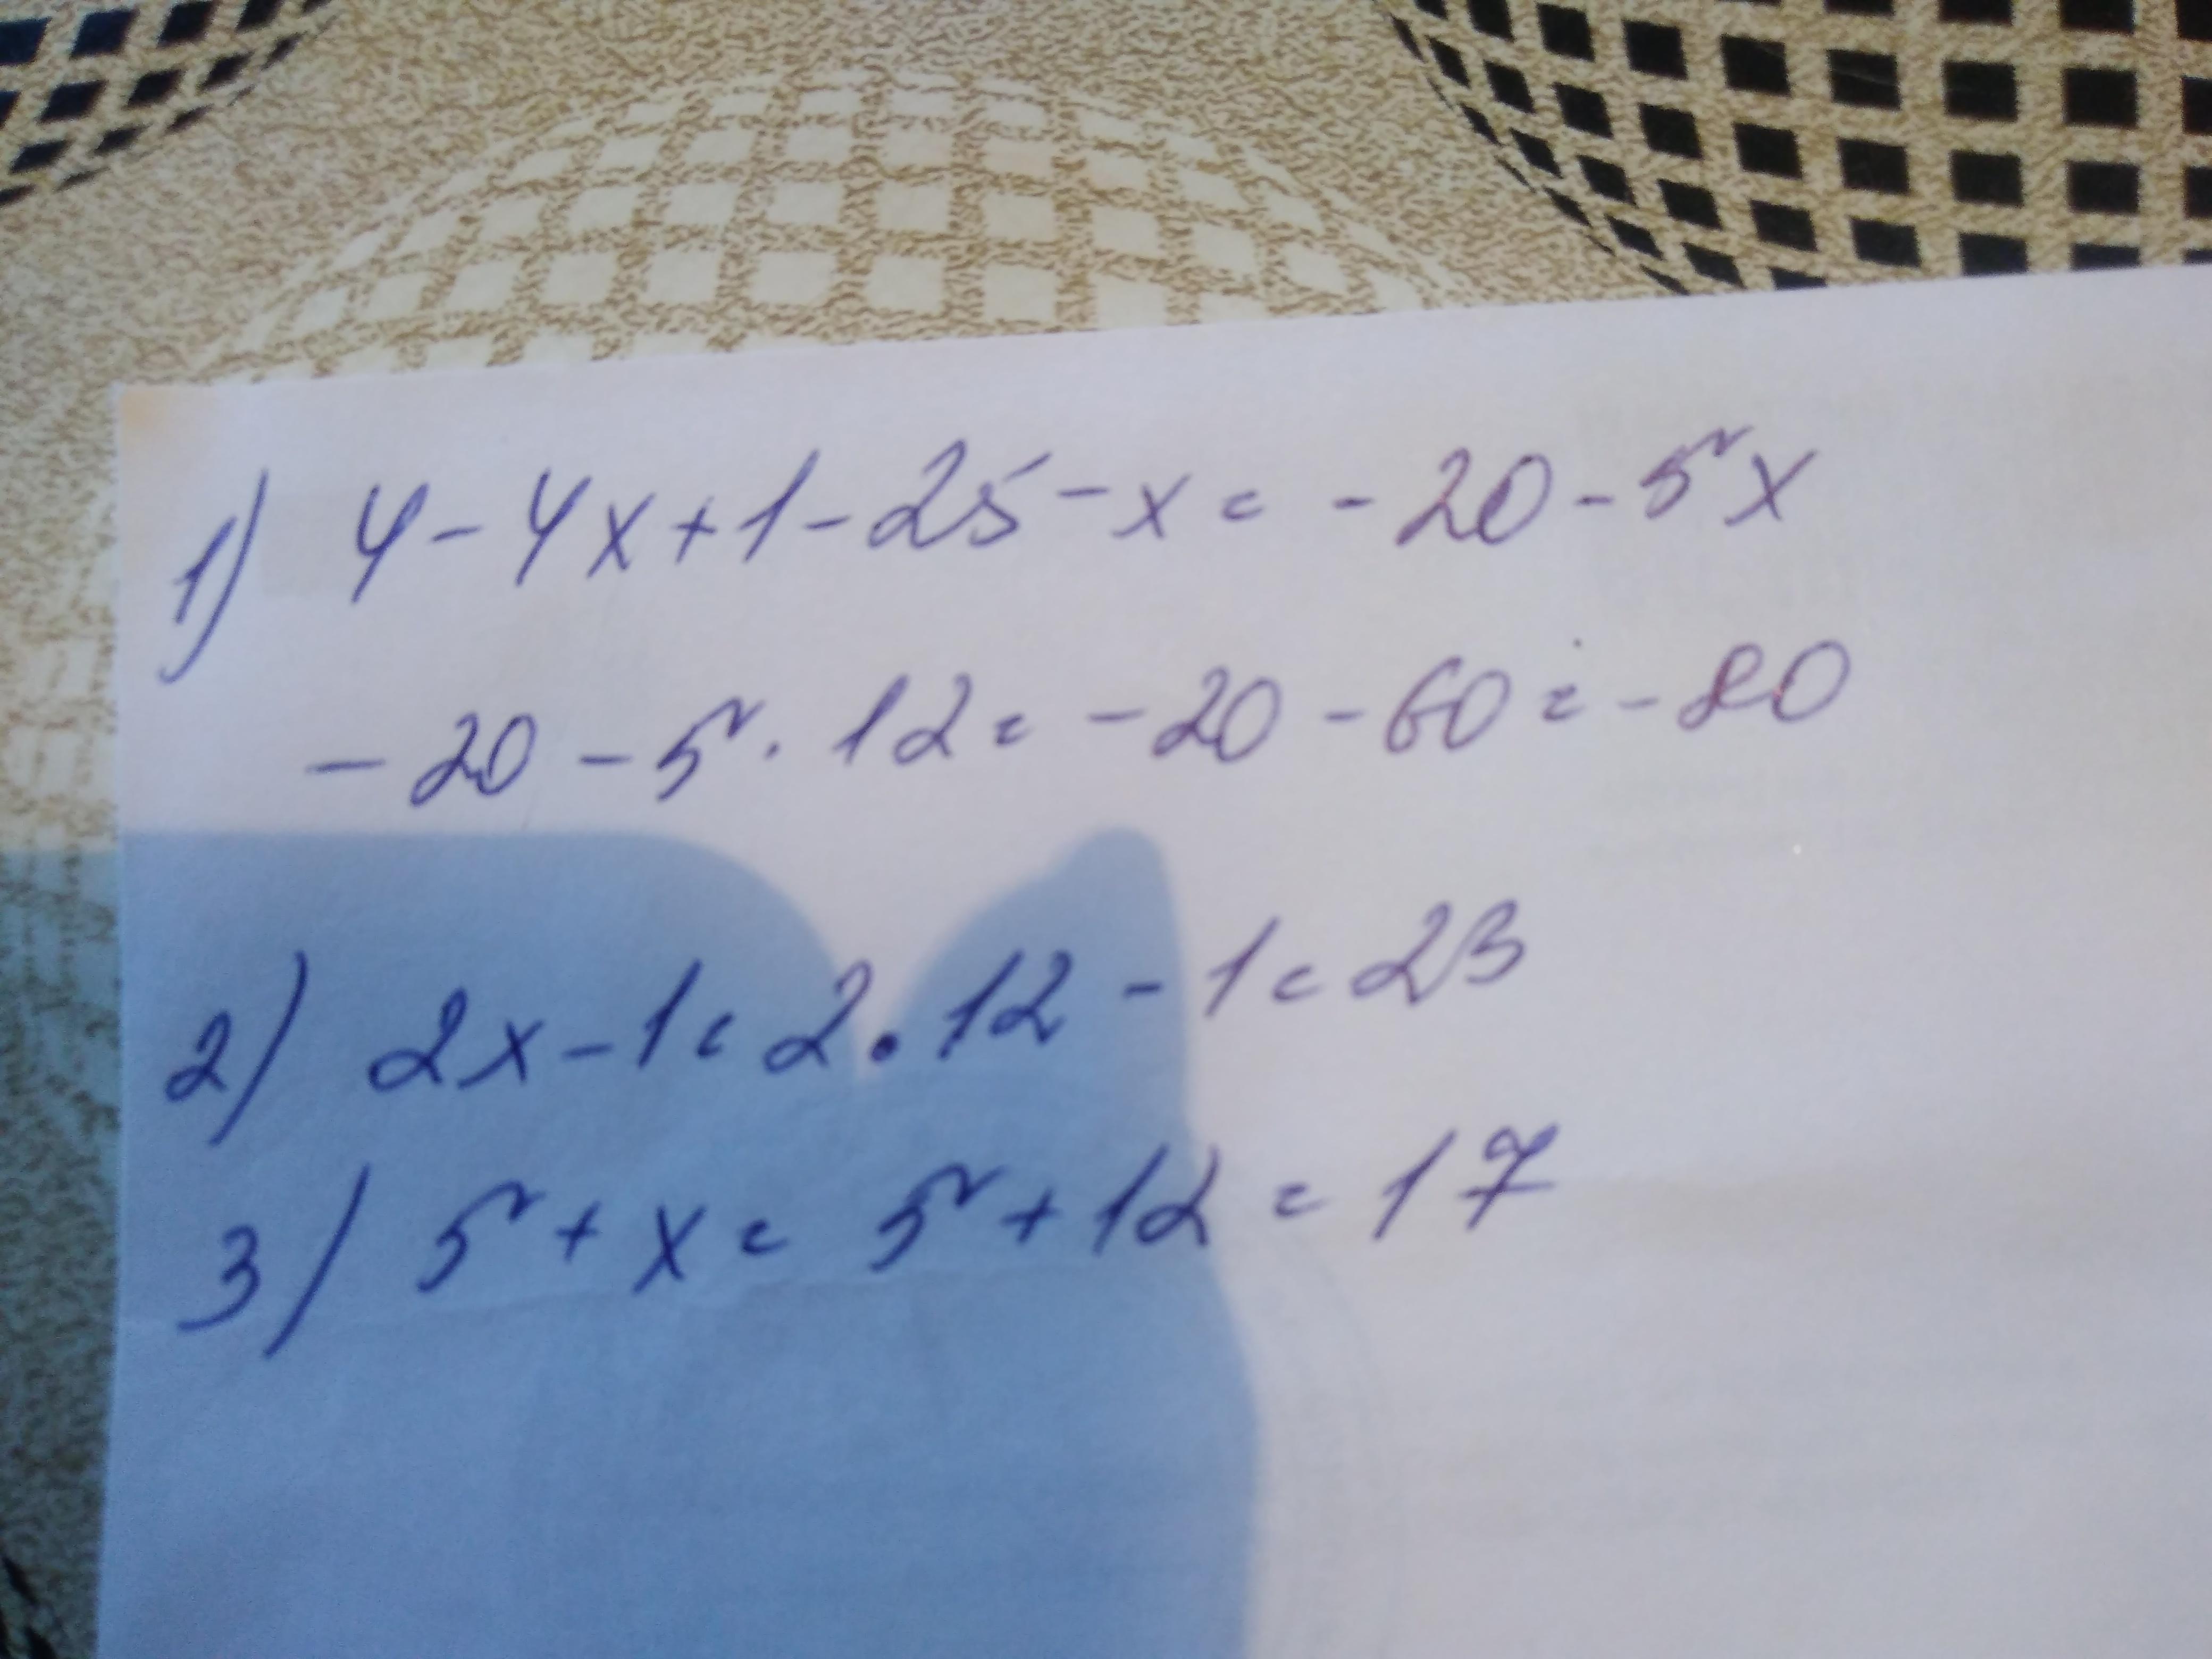 1) 4 - 4x + 1 - 25 - x = - 20 - 5x
- 20 - 5 · 12 = - 20 - 60 = - 80
2) 2x - 1 = 2 · 12 - 1 = 23
3) 5 + x = 5 + 12 = 17